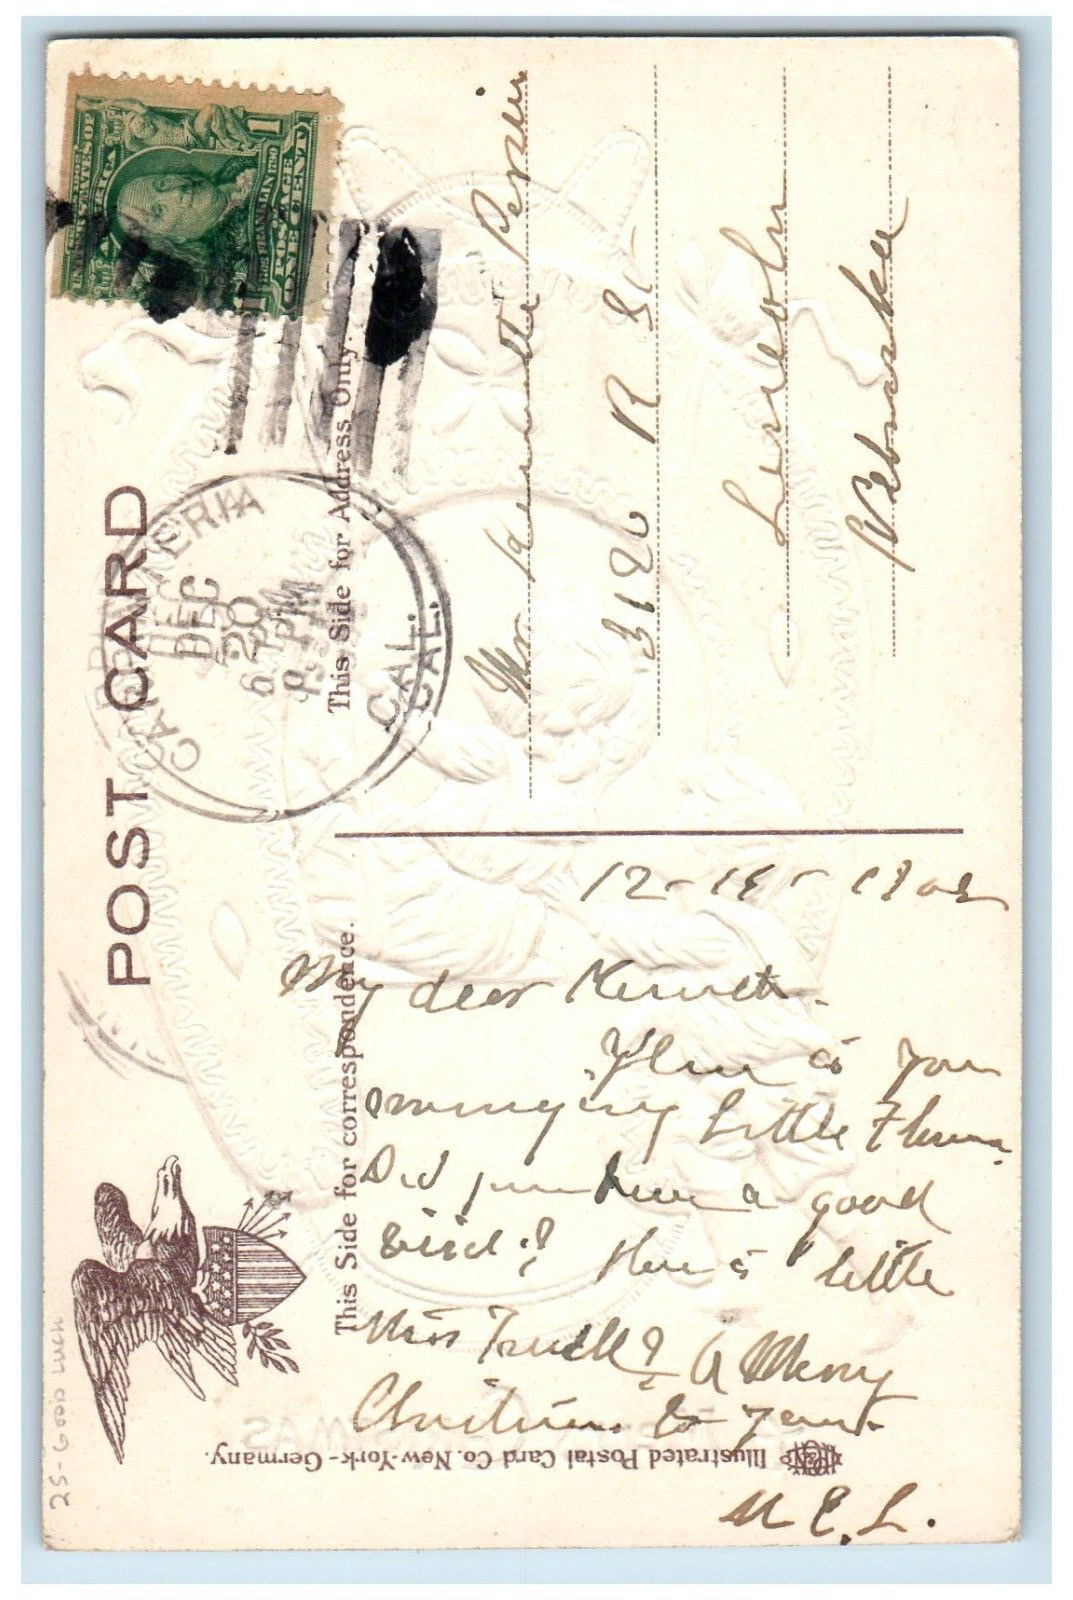 POST CARD
UNITED STATES OF AMERICA
FRANKLIN
POSTAGE
ONE CENT
1 1
CARPINTERIA
DEC
20
6 PM
CAL.
This Side for Address Only.
3120 R St
Lincoln
Nebraska
This Side for correspondence.
12-19-190
My dear Kenneth.
is your
Little
Did you have a good
is little
Miss A Merry
Christmas to you.
M E. L.
Illustrated Postal Card Co. New-York-Germany.
25-GOOD LUCK